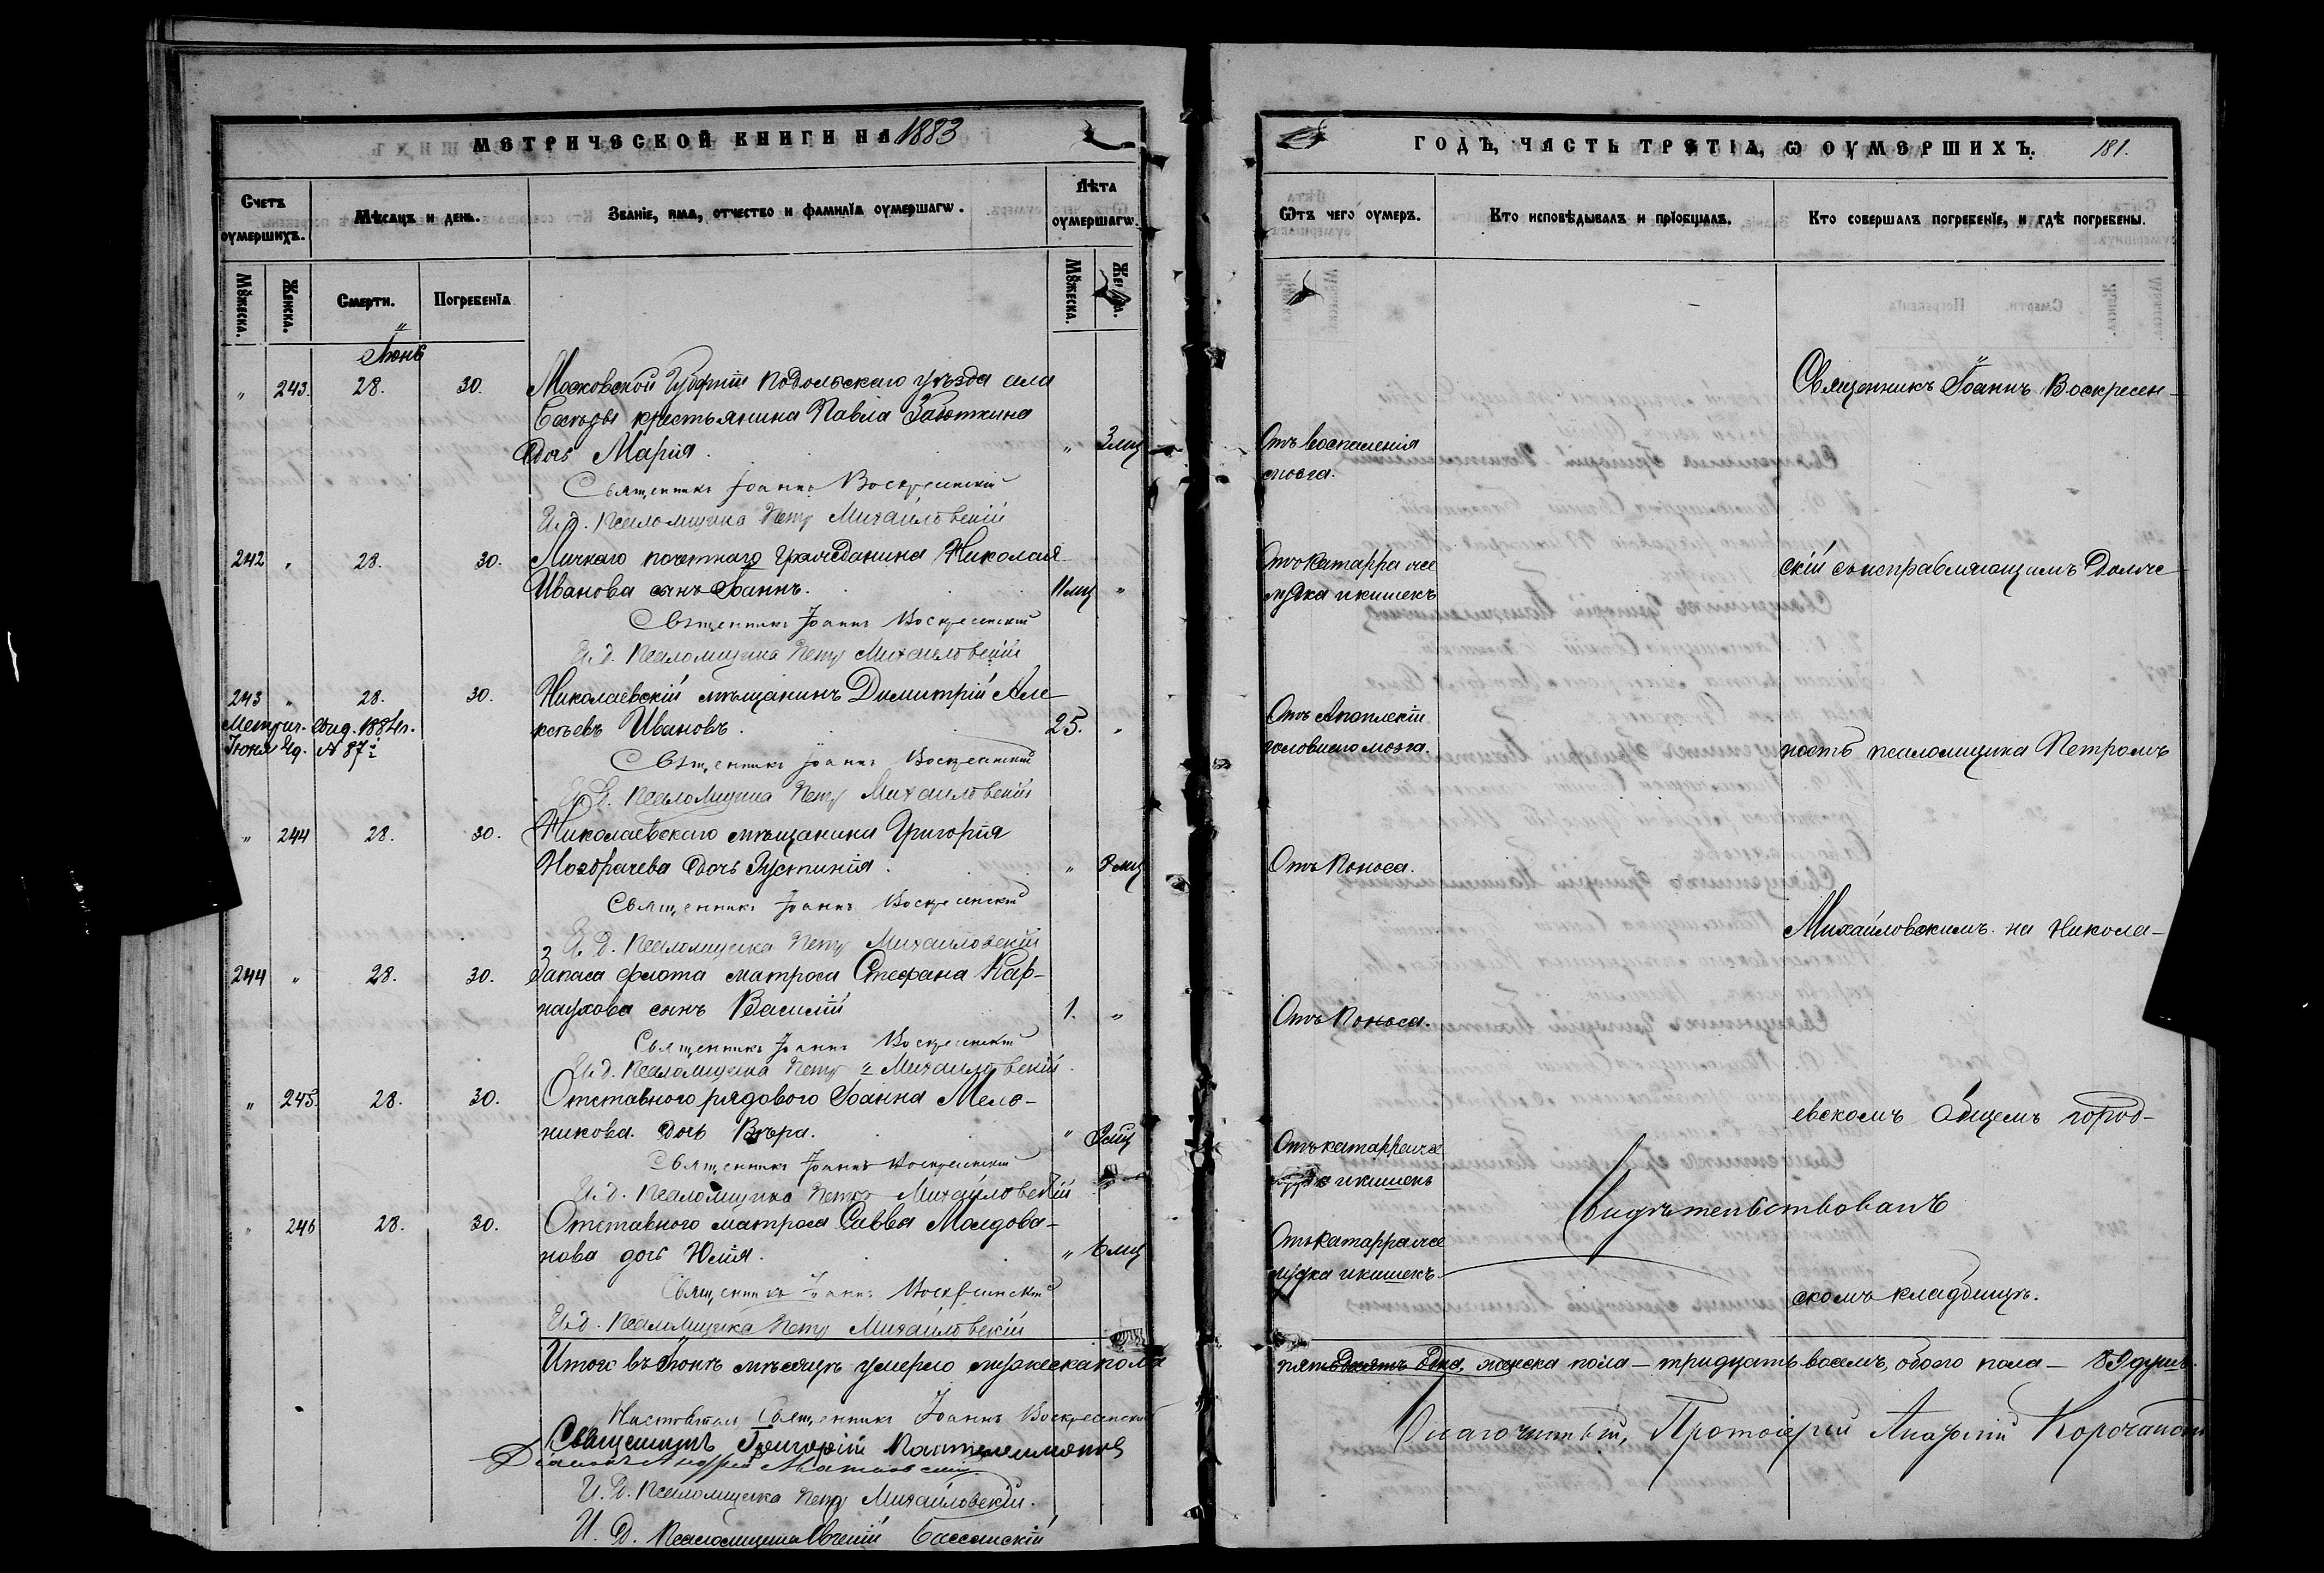 МЕТРИЧЕСКОЙ КНИГИ НА 1883
Счетъ оумершихъ.
Мѣсяцъ и день.
Званіе, имя, отчество и фамилїа оумершагѡ.
Лѣта оумершагѡ.
Мѫжеска.
Женска.
Смерти.
Погребенїа
Мѫжеска.
Іюнь
" 243. 28. 30. Московской Губерніи Подольскаго уѣзда села
крестьянина Павла Заюткина
дочь Марія. " 3 мц
Священникъ Іоаннъ Воскресенскій
И. д. Псаломщика Петръ Михайловскій
242 " 28. 30. Личнаго почетнаго гражданина Николая
Иванова сынъ Іоаннъ. 11 мц "
Священникъ Іоаннъ Воскресенскій
И. д. Псаломщика Петръ Михайловскій
243 " 28. 30. Николаевскій мѣщанинъ Димитрій Але-
ксѣевъ Ивановъ. 25. "
Метрич. выд. 1884 г.
Іюня 4д. № 87
Священникъ Іоаннъ Воскресенскій
И. д. Псаломщика Петръ Михайловскій
" 244 28. 30. Николаевскаго мѣщанина Григорія
Ноздрачева дочь Іустинія. " мц
Священникъ Іоаннъ Воскресенскій
И. д. Псаломщика Петръ Михайловскій
244 " 28. 30. Запаса флота матроса Стефана Кар-
наухова сынъ Василій 1. "
Священникъ Іоаннъ Воскресенскій
И. д. Псаломщика Петръ Михайловскій
" 245. 28. 30. Отставного рядового Іоанна Мель-
никова дочь Вѣра. " мц
Священникъ Іоаннъ Воскресенскій
И. д. Псаломщика Петръ Михайловскій
" 246 28. 30. Отставного матроса Саввы Молдова-
нова дочь Юлія. " 6 мц
Священникъ Іоаннъ Воскресенскій
И. д. Псаломщика Петръ Михайловскій
Итого въ Іюнѣ мѣсяцѣ умерло мужеска пола
Священникъ Іоаннъ Воскресенскій
Священникъ Григорій Пантелеимоновъ
И. д. Псаломщика Петръ Михайловскій.
И. д. Псаломщика Евгеній
ГОДЪ, ЧАСТЬ ТРЕТІА, Ѡ ОУМЕРШИХЪ. 181.
Ѿтъ чего оумеръ.
Кто исповѣдывалъ и прїобщалъ.
Кто совершалъ погребенїе, и гдѣ погребены.
Отъ воспаленія
мозга.
Отъ катарра же
лудка и кишекъ
Отъ Апоплексіи
головного мозга.
Отъ Поноса.
Отъ Поноса.
Отъ катарра же
и кишекъ
Отъ катарра же
лудка и кишекъ.
Священникъ Іоаннъ Воскресен-
скій съ исправляющимъ долж-
ность псаломщика Петромъ
Михайловскимъ на Никола-
евскомъ общемъ город-
скомъ кладбищѣ.
Свидѣтельствовалъ
пятьдесятъ одна, женска пола - тридцать восемь, обоего пола - 89 душъ.
Благочинный, Протоіерей